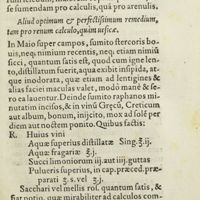 sumendam pro calculis, quá pro arenulis.
Aliud optimum & perfectissimum remedium,
tam pro renum calculo, quàm uesicæ.
In Maio super campos, sumito stercoris bo-
uis, neq; nimium recentis, neq; etiam nimiū
sicci, quantum satis est, quod cum igne len-
to, distillatum fuerit, aqua exibit insipida, at-
que moderata, quæ etiam ad lentigines &
alias faciei maculas valet, modò manè & se-
ro ea lauentur. Deinde sumito raphanos mi-
nutatim incisos, & in vinū Gręcū, Creticum
aut album, bonum, iniijcito, mox ad sole per
diem aut noctem ponito. Quibus factis:
R. Huius vini
Aquæ superius distillatæ Sing. ℥.ij.
Aquæ fragariæ ℥.j.
Succi limoniorum iij. aut iiij. guttas
Pulueris superius, in cap. præced. præ-
parati ʒ.s. vel ʒ.j.
Sacchari vel mellis ros. quantum satis, &
fiat potio, quæ mirabiliter ad calculos com-